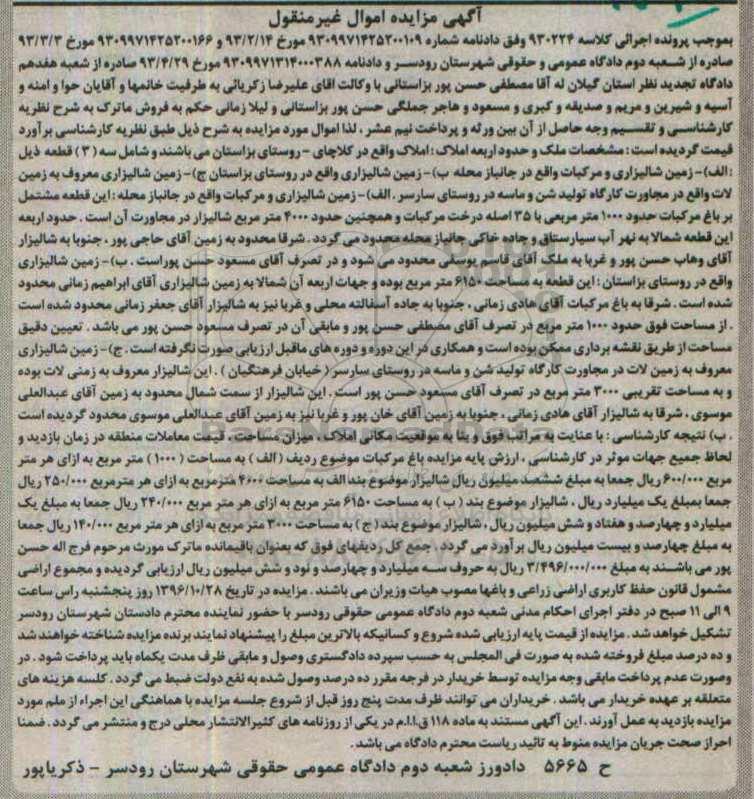 آگهی مزایده اموال غیرمنقول
بموجب پرونده اجرائی کلاسه ۹۳۰۲۲۴ وفق دادنامه شماره ۹۳۰۹۹۷۱۴۲۵۲۰۰۱۰۹ مورخ ۹۳/۲/۱۴ و ۹۳۰۹۹۷۱۴۲۵۲۰۰۱۶۶ مورخ ۹۳/۳/۳
صادره از شعبه دوم دادگاه عمومی و حقوقی شهرستان رودسر و دادنامه ۹۳۰۹۹۷۱۳۱۴۰۰۰۳۸۸ مورخ ۹۳/۴/۲۹ صادره از شعبه هفدهم
دادگاه تجدید نظر استان گیلان له آقا مصطفی حسن پور بزاستانی با وکالت اقای علیرضا زکریائی به طرفیت خانمها و آقایان حوا و امنه و
آسیه و شیرین و مریم و صدیقه و کبری و مسعود و هاجر جملگی حسن پور بزاستانی و لیلا زمانی حکم به فروش ماترک به شرح نظریه
کارشناسی و تقسیم وجه حاصل از آن بین ورثه و پرداخت نیم عشر . لذا اموال مورد مزایده به شرح ذیل طبق نظریه کارشناسی برآورد
قیمت گردیده است : مشخصات ملک و حدود اربعه املاک : املاک واقع در کلاچای - روستای بزاستان می باشند و شامل سه ( ۳ ) قطعه ذیل
: الف)- زمین شالیزاری و مرکبات واقع در جانباز محله ب)- زمین شالیزاری واقع در روستای بزاستان ج)- زمین شالیزاری معروف به زمین
لات واقع در مجاورت کارگاه تولید شن و ماسه در روستای سارسر . الف)- زمین شالیزاری و مرکبات واقع در جانباز محله : این قطعه مشتمل
بر باغ مرکبات حدود ۱۰۰۰ متر مربعی با ۳۵ اصله درخت مرکبات و همچنین حدود ۴۰۰۰ متر مربع شالیزار در مجاورت آن است . حدود اربعه
این قطعه شمالا به نهر آب سیارستاق و جاده خاکی جانباز محله محدود می گردد . شرقا محدود به زمین آقای حاجی پور ، جنوبا به شالیزار
آقای وهاب حسن پور و غربا به ملک آقای قاسم یوسفی محدود می شود و در تصرف آقای مسعود حسن پوراست . ب)- زمین شالیزاری
واقع در روستای بزاستان : این قطعه به مساحت ۶۱۵۰ متر مربع بوده و جهات اربعه آن شمالا به زمین شالیزاری آقای ابراهیم زمانی محدود
شده است . شرقا به باغ مرکبات آقای هادی زمانی ، جنوبا به جاده آسفالته محلی و غربا نیز به شالیزار آقای جعفر زمانی محدود شده است
. از مساحت فوق حدود ۱۰۰۰ متر مربع در تصرف آقای مصطفی حسن پور و مابقی آن در تصرف مسعود حسن پور می باشد . تعیین دقیق
مساحت از طریق نقشه برداری ممکن بوده است و همکاری در این دوره و دوره های ماقبل ارزیابی صورت نگرفته است . ج)- زمین شالیزاری
معروف به زمین لات در مجاورت کارگاه تولید شن و ماسه در روستای سارسر ( خیابان فرهنگیان ) . این شالیزار معروف به زمنی لات بوده
و به مساحت تقریبی ۳۰۰۰ متر مربع در تصرف آقای مسعود حسن پور است . این شالیزار از سمت شمال محدود به زمین آقای عبدالعلی
موسوی ، شرقا به شالیزار آقای هادی زمانی ، جنوبا به زمین آقای خان پور و غربا نیز به زمین آقای عبدالعلی موسوی محدود گردیده است
. ب) نتیجه کارشناسی : با عنایت به مراتب فوق و بنا به موقعیت مکانی املاک ، میزان مساحت ، قیمت معاملات منطقه در زمان بازدید و
لحاظ جمیع جهات موثر در کارشناسی ، ارزش پایه مزایده باغ مرکبات موضوع ردیف ( الف ) به مساحت ( ۱۰۰۰ ) متر مربع به ازای هر متر
مربع ۶۰۰/۰۰۰ ریال جمعا به مبلغ ششصد میلیون ریال شالیزار موضوع بند الف به مساحت ۴۰۰۰ مترمربع به ازای هر مترمربع ۲۵۰/۰۰۰ ریال
جمعا بمبلغ یک میلیارد ریال ، شالیزار موضوع بند ( ب ) به مساحت ۶۱۵۰ متر مربع به ازای هر متر مربع ۲۴۰/۰۰۰ ریال جمعا به مبلغ یک
میلیارد و چهارصد و هفتاد و شش میلیون ریال ، شالیزار موضوع بند ( ج ) به مساحت ۳۰۰۰ متر مربع به ازای هر متر مربع ۱۴۰/۰۰۰ ریال جمعا
به مبلغ چهارصد و بیست میلیون ریال برآورد می گردد . جمع کل ردیفهای فوق که بعنوان باقیمانده ماترک مورث مرحوم فرج اله حسن
پور می باشند به مبلغ ۳/۴۹۶/۰۰۰/۰۰۰ ریال به حروف سه میلیارد و چهارصد و نود و شش میلیون ریال ارزیابی گردیده و مجموع اراضی
مشمول قانون حفظ کاربری اراضی زراعی و باغها مصوب هیات وزیران می باشند . مزایده در تاریخ ۱۳۹۶/۱۰/۲۸ روز پنجشنبه راس ساعت
۹ الی ۱۱ صبح در دفتر اجرای احکام مدنی شعبه دوم دادگاه عمومی حقوقی رودسر با حضور نماینده محترم دادستان شهرستان رودسر
تشکیل خواهد شد . مزایده از قیمت پایه ارزیابی شده شروع و کسانیکه بالاترین مبلغ را پیشنهاد نمایند برنده مزایده شناخته خواهند شد
و ده درصد مبلغ فروخته شده به صورت فی المجلس به حسب سپرده دادگستری وصول و مابقی ظرف مدت یکماه باید پرداخت شود . در
وصورت عدم پرداخت مابقی وجه مزایده توسط خریدار در فرجه مقرر ده درصد وصول شده به نفع دولت ضبط می گردد . کلسه هزینه های
متعلقه بر عهده خریدار می باشد . خریداران می توانند ظرف مدت پنج روز قبل از شروع جلسه مزایده با هماهنگی این اجراء از ملم مورد
مزایده بازدید به عمل آورند . این آگهی مستند به ماده ۱۱۸ ق.ا.ا.م در یکی از روزنامه های کثیرالانتشار محلی درج و منتشر می گردد . ضمنا
احراز صحت جریان مزایده منوط به تائید ریاست محترم دادگاه می باشد .
ح ۵۶۶۵ دادورز شعبه دوم دادگاه عمومی حقوقی شهرستان رودسر - ذکریاپور